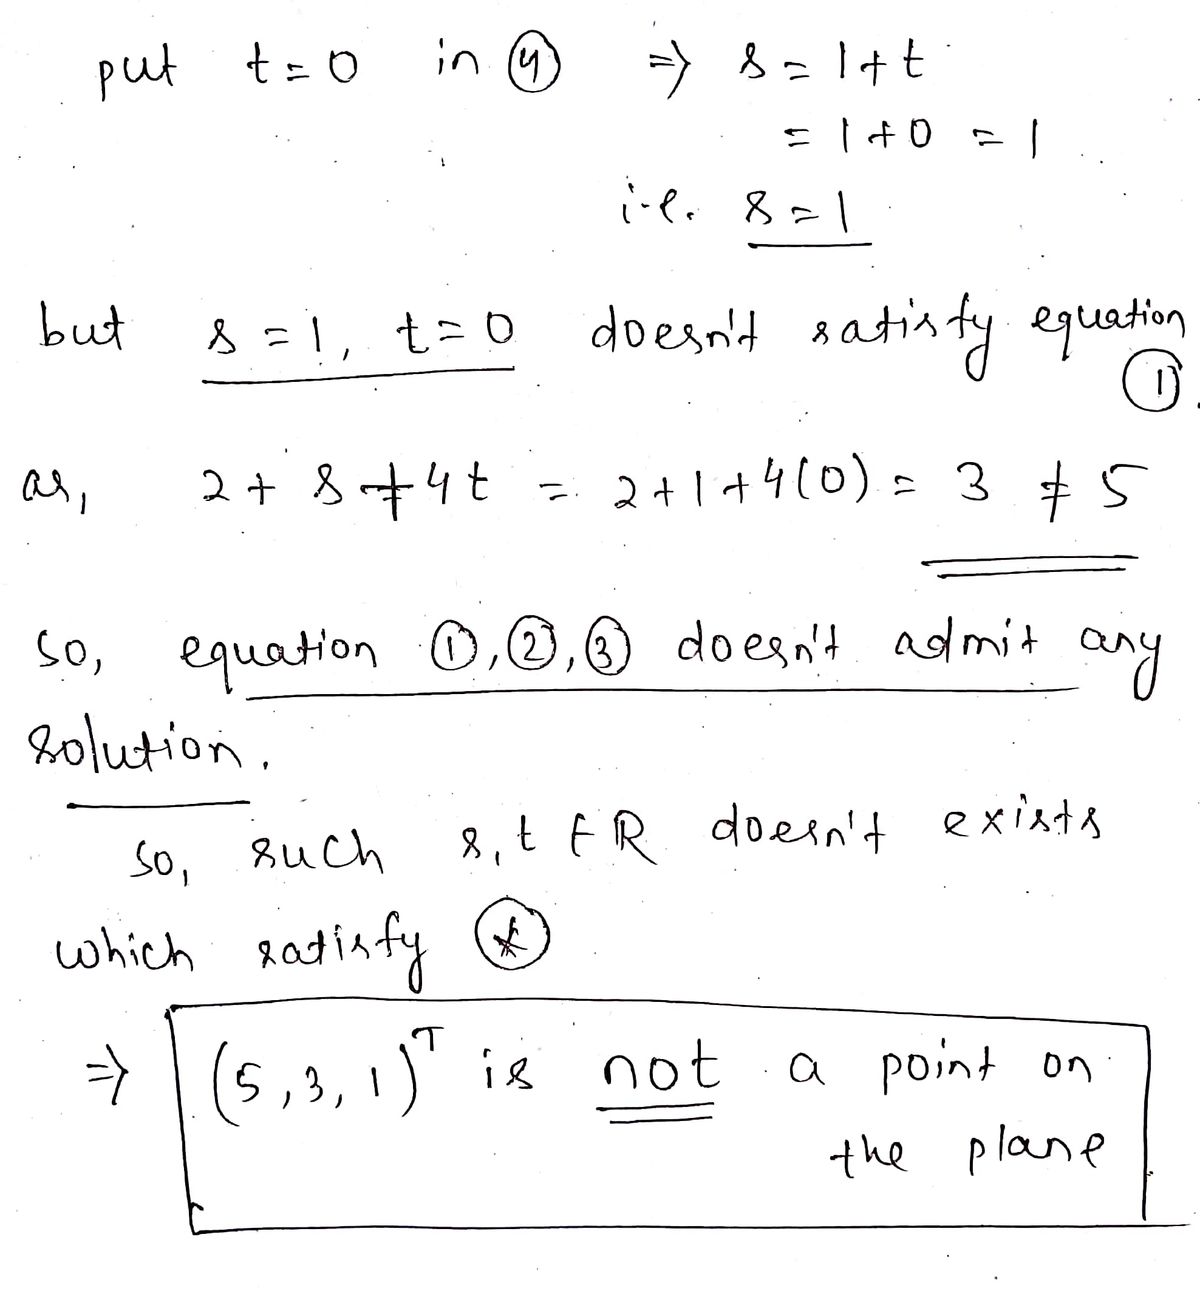 put t=0 in ④ ⇒ s = 1+t
= 1+0 = 1
i.e. s=1
but s=1, t=0 doesn't satisfy equation
①.
as, 2+s+4t = 2+1+4(0) = 3 ≠ 5
so, equation ①,②,③ doesn't admit any
solution.
so, such s,t ∈ R doesn't exists
which satisfy ⊛
⇒ (5,3,1)ᵀ is not a point on
the plane